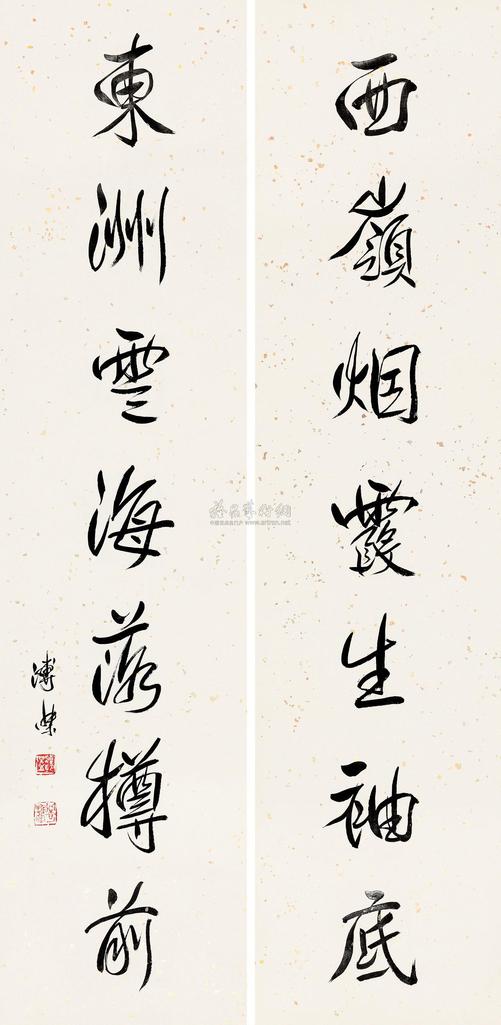 西嶺烟霞生袖底
東洲雲海落樽前
溥
www.artron.net